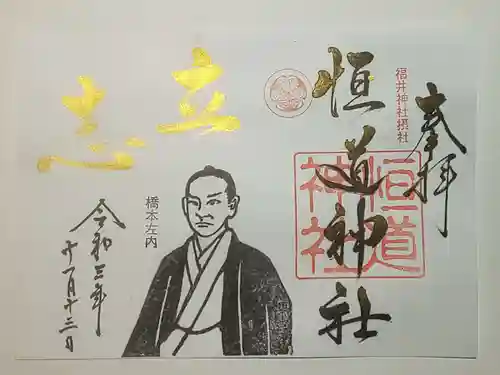 奉拝
福井神社摂社
恒道神社
恒道
神社
立志
橋本左内
令和三年
十一月十三日